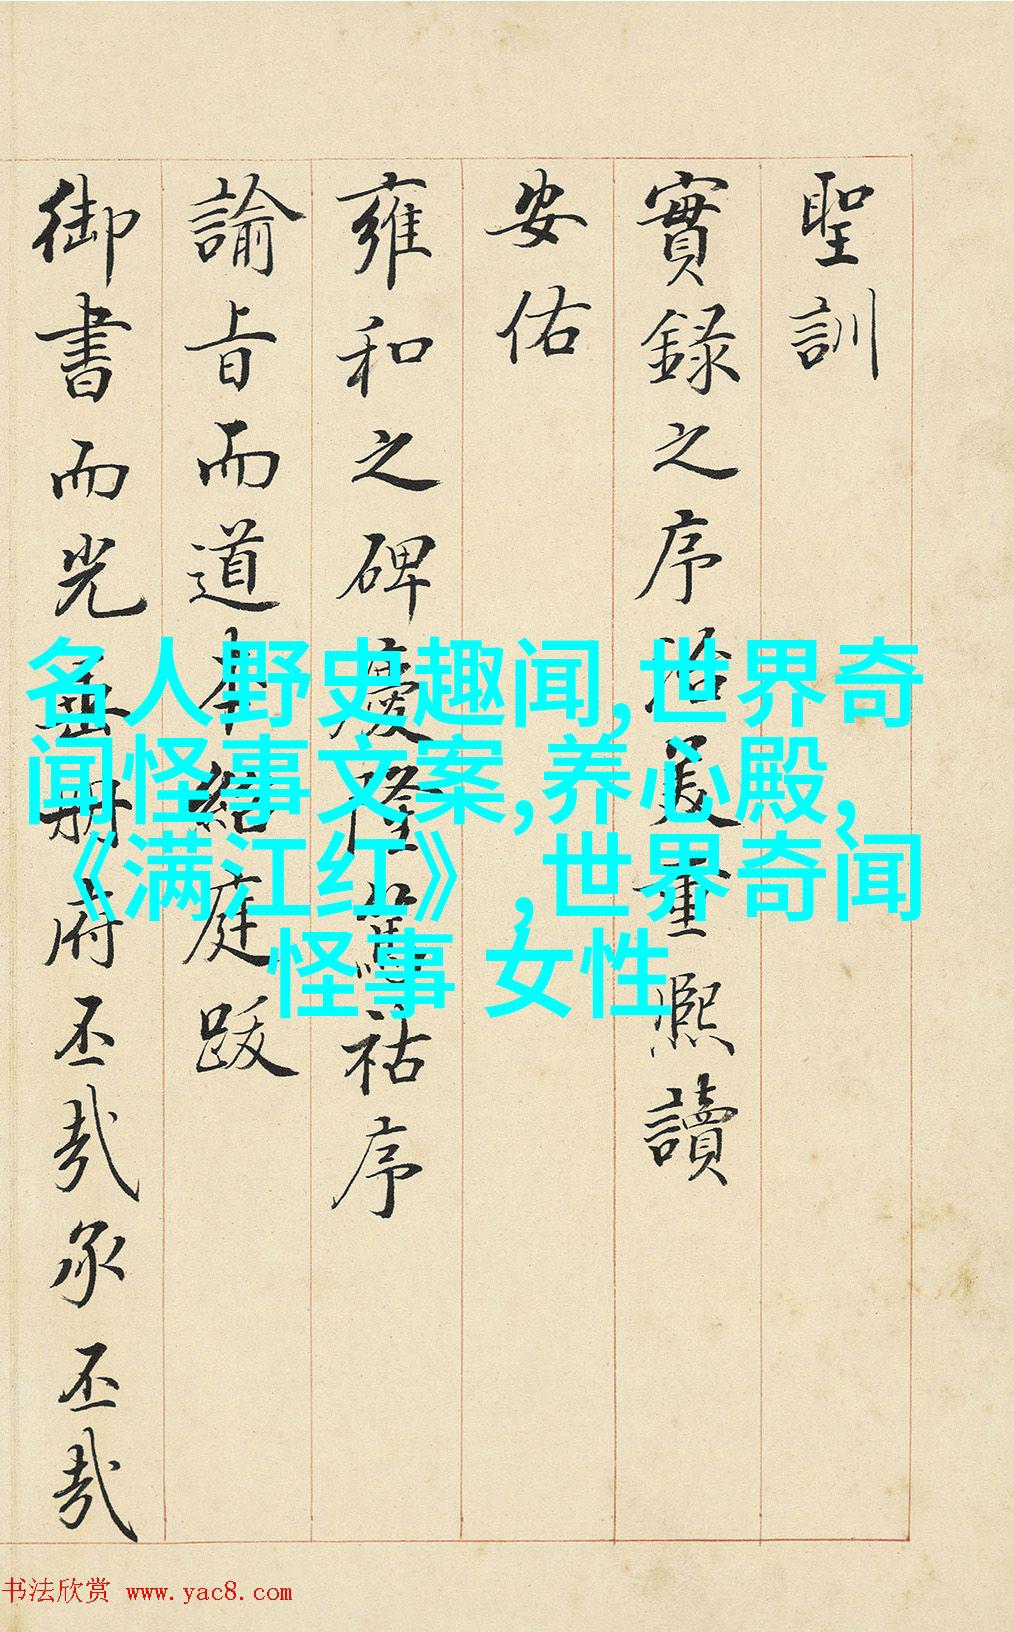 聖訓
實録之序洽美重熙讀
安佑
雍和之碑慶隆篤祜序
諭旨而道本紹庭跋
御書而光垂册府丕哉承丕哉
名人野史趣闻,世界奇
闻怪事文案,养心殿,
《满江红》,世界奇闻
怪事 女性
书法欣赏 www.yac8.com